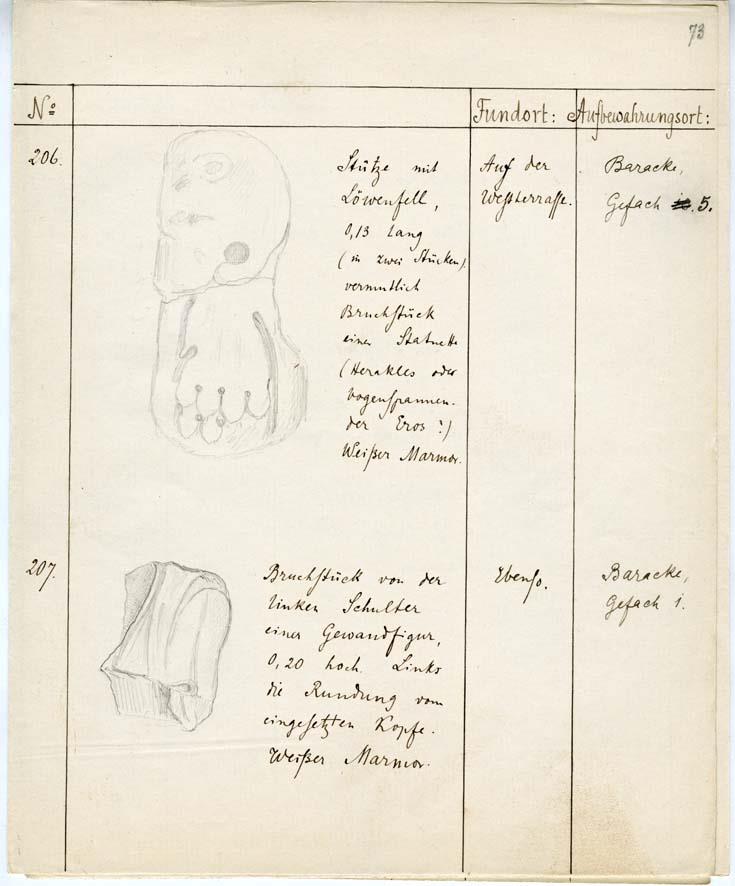 73
No Fundort: Aufbewahrungsort:
206. Stütze mit Auf der Baracke,
Löwenfell, Westterrasse. Gefach 5.
0,13 lang
(in zwei Stücken)
vermutlich
Bruchstück
einer Statuette
(Herakles oder
bogenspannen-
der Eros?)
Weißer Marmor.
207. Bruchstück von der Ebenso. Baracke,
linken Schulter Gefach 1.
einer Gewandfigur,
0,20 hoch. Links
die Rundung vom
eingesetzten Kopfe.
Weißer Marmor.